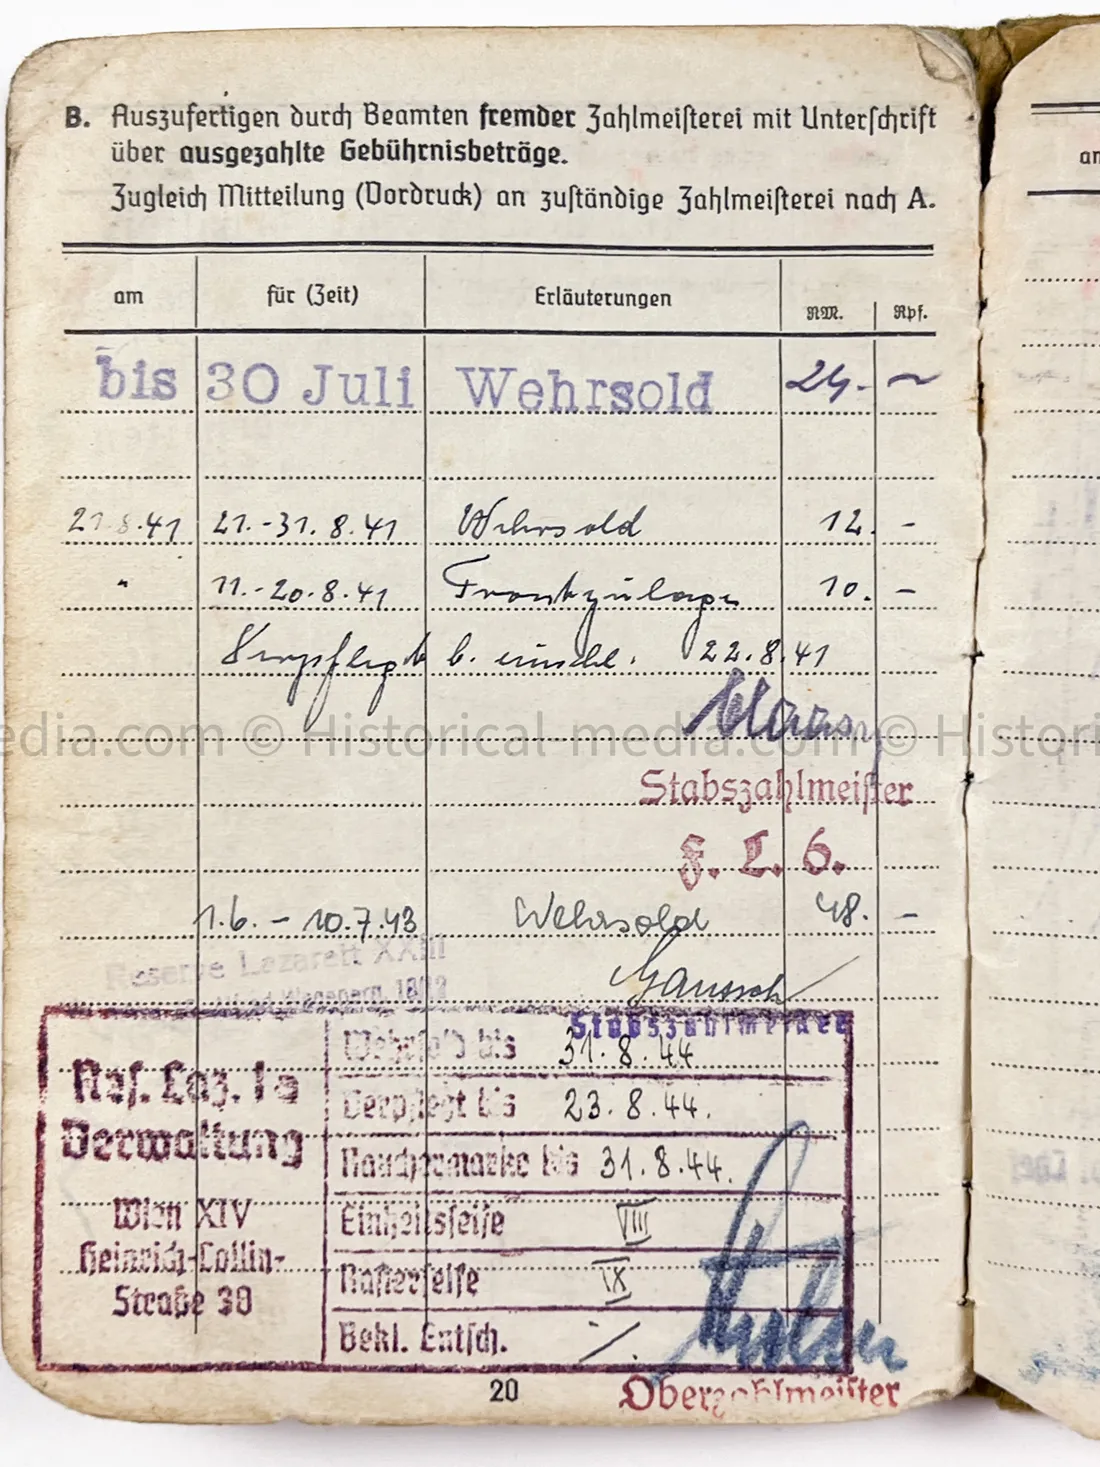 B. Auszufertigen durch Beamten fremder Zahlmeisterei mit Unterschrift
über ausgezahlte Gebührnisbeträge.
Zugleich Mitteilung (Vordruck) an zuständige Zahlmeisterei nach A.
am für (Zeit) Erläuterungen RM. Rpf.
bis 30 Juli Wehrsold 24.- ~
21.8.41 21.-31.8.41 Wehrsold 12. -
" 11.-20.8.41 Frontzulage 10. -
Verpflegt b. einschl. 22.8.41
edia.com © Historical-media.com © Histori
Stabszahlmeister
F. L. 6.
1.6. - 10.7.43 Wehrsold 48. -
Reserve Lazarett XXIII
Stabszahlmeister
Res. Laz. 1a
Verwaltung
Wien XIV
Heinrich-Collin-
Straße 30
Wehrsold bis 31.8.44
Verpflegt bis 23.8.44.
Rauchermarke bis 31.8.44.
Einheitsseife VIII
Rasierseife IX
Bekl. Entsch. /.
20
Oberzahlmeister
an